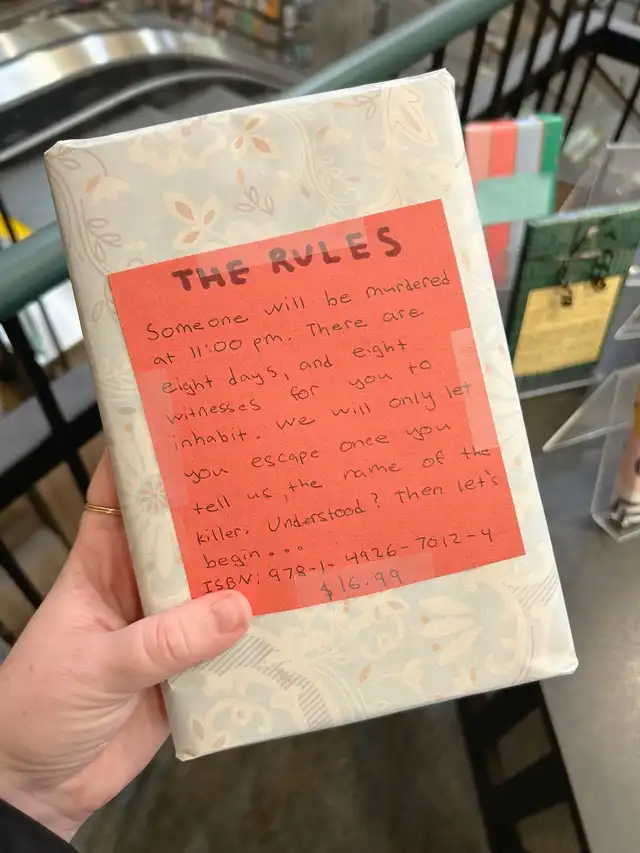 THE RULES
Someone will be murdered
at 11:00 pm. There are
eight days, and eight
witnesses for you to
inhabit. We will only let
you escape once you
tell us the name of the
killer. Understood? Then let's
begin...
ISBN: 978-1-4926-7012-4
$16.99